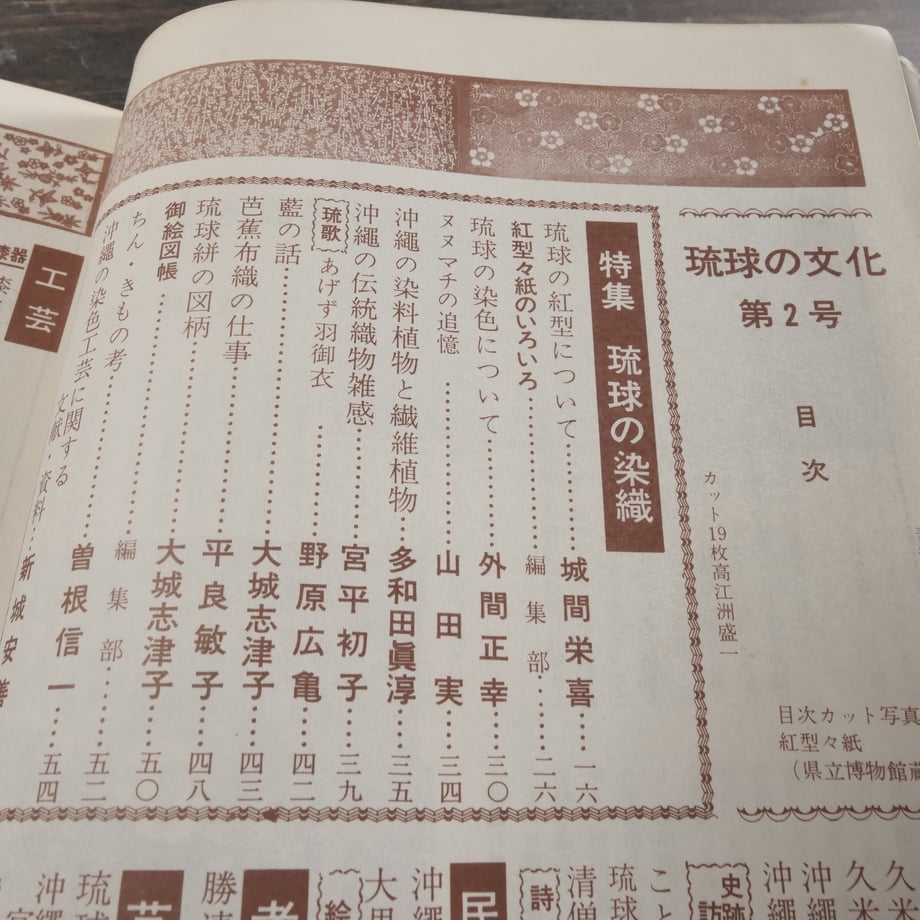 琉球の文化
第2号
目次
カット19枚高江洲盛一
目次カット写真
紅型々紙
(県立博物館蔵
特集 琉球の染織
琉球の紅型について……城間栄喜……一六
紅型々紙のいろいろ……編集部……二六
琉球の染色について……外間正幸……三〇
ヌヌマチの追憶……山田実……三四
沖繩の染料植物と繊維植物……多和田眞淳……三五
沖繩の伝統織物雑感……宮平初子……三九
琉歌 あげず羽御衣……野原広亀……四二
藍の話……大城志津子……四三
芭蕉布織の仕事……平良敏子……四八
琉球絣の図柄……大城志津子……五〇
御絵図帳……編集部……五二
ちん・きもの考……曽根信一……五四
沖繩の染色工芸に関する
文献・資料……新城安善
工芸
漆器
久米
久米
沖繩
沖繩
史跡
こと
琉球
清僧
詩
民
沖繩
大里
絵
勝連
琉球
沖繩